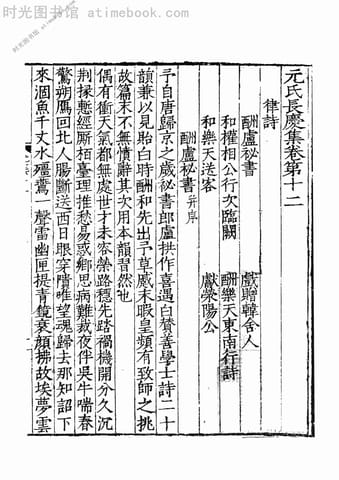 时光图书馆 - atimebook.com
元氏長慶集卷第十二
律詩
酬盧祕書 戲贈韓舍人
和權相公行次臨闕 酬樂天東南行詩
和樂天送客 戲榮陽公
酬盧祕書 并序
予自唐歸京之歲祕書郎盧拱作喜遇白贊善學士詩二十
韻兼以見貽白時酬和先出予草蹙未暇皇頻有致師之挑
故篇末不無憤辭其次用本韻習然也
偶有衝天氣都無處世才未容榮路穩先踏禍機開分久沉
荆掾慙經厠栢臺理推愁易惑鄉思病難裁夜伴吳牛喘春
驚朔鴈回北人腸斷送西日眼穿隤唯望魂歸去那知詔下
來涸魚千丈水殭鷰一聲雷幽匣提青鏡衰顔拂故埃夢雲
时光图书馆 - atimebook.com